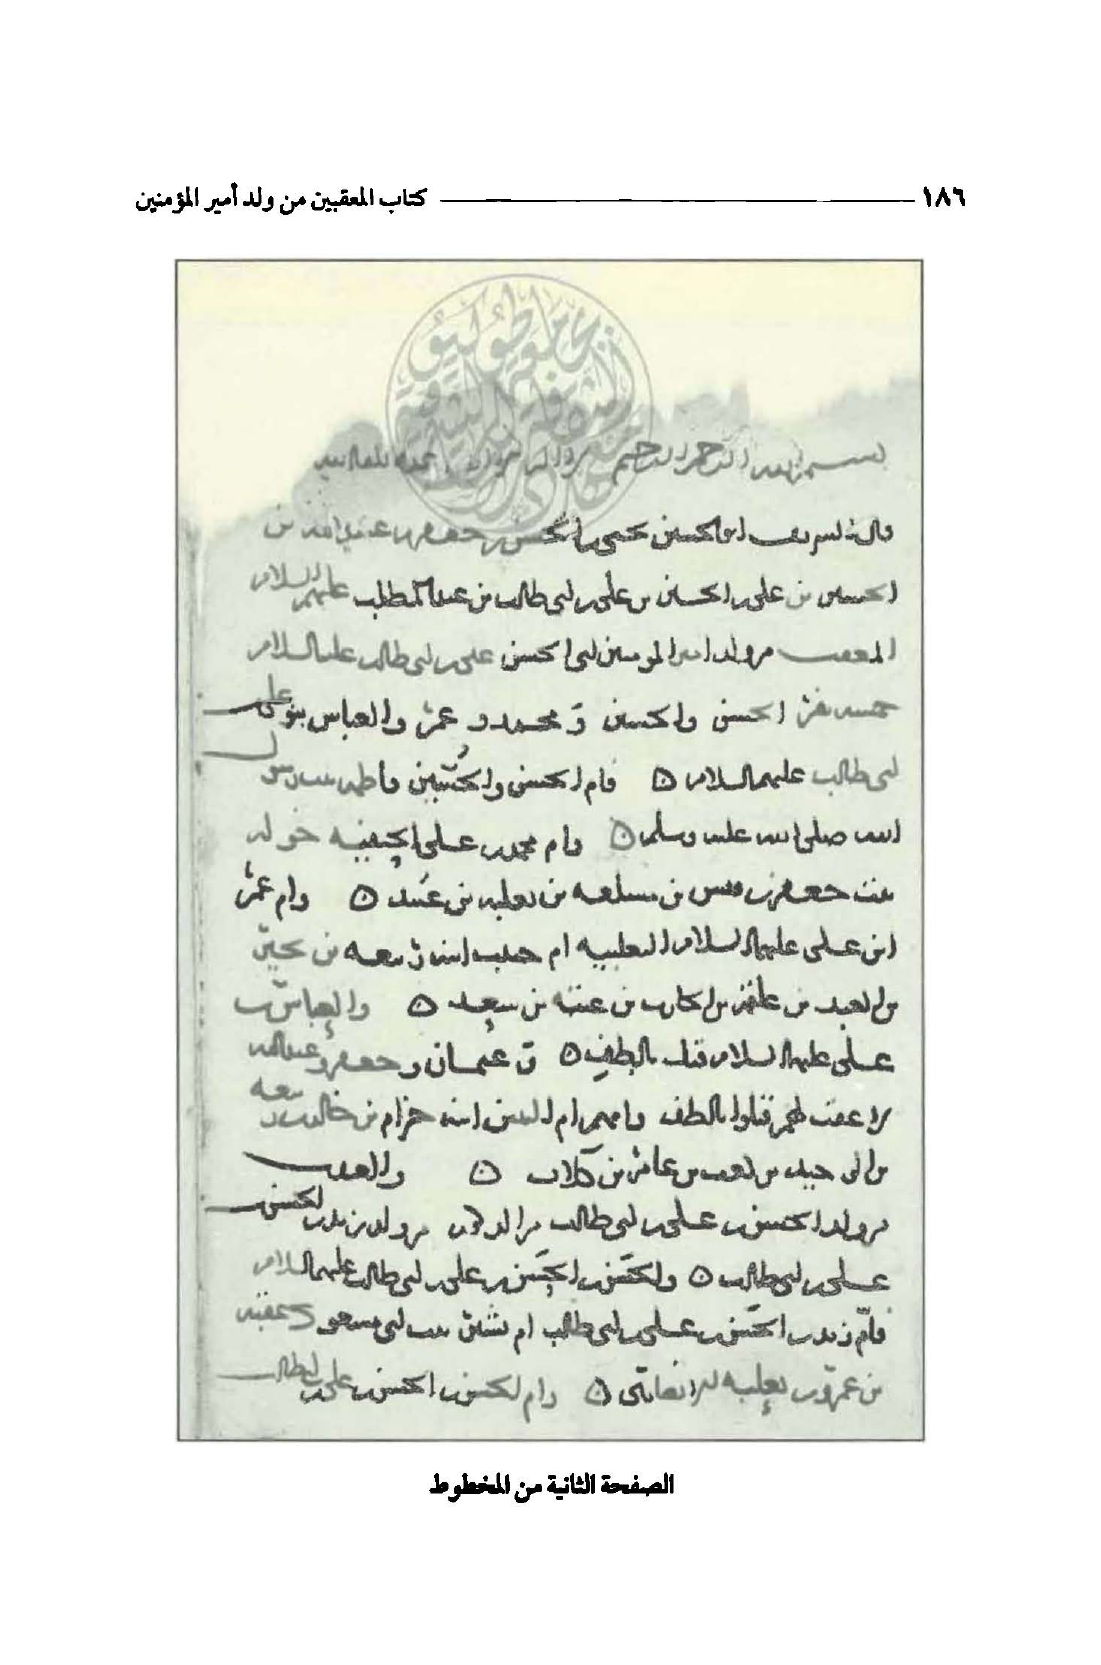 ١٨٦ كتاب المعقبين من ولد أمير المؤمنين
بسم الله الرحمن الرحيم
قال الشريف ابو الحسين يحيى بن الحسن بن جعفر بن عبيد الله بن
الحسين بن علي بن الحسين بن علي بن ابي طالب بن عبد المطلب عليهم السلام
المعقب من ولد امير المومنين ابي الحسن علي بن ابي طالب عليه السلام
خمسه نفر الحسن والحسين و محمد و عمر والعباس بنو علي بن
ابي طالب عليهم السلام ٥ فام الحسن والحسين فاطمه بنت رسول
الله صلى الله عليه وسلم ٥ وام محمد بن علي الحنفيه خوله
بنت جعفر بن قيس بن مسلمه بن ثعلبه بن عبيد ٥ وام عمر
ابن علي عليهما السلام الثعلبيه ام حبيب ابنه ربيعه بن بحير
بن العبد بن علقمه بن الحارث بن عتبه بن سعد ٥ والعباس بن
علي عليهما السلام قتل بالطف ٥ و عثمان و جعفر وعبد الله
لا عقب لهم قتلوا بالطف وامهم ام البنين ابنه حزام بن خالد بن ربيعه
بن الوحيد بن كعب بن عامر بن كلاب ٥ والعقب
من ولد الحسن بن علي بن ابي طالب من ولد زيد بن الحسن بن
علي بن ابي طالب ٥ والحسن بن الحسن بن علي بن ابي طالب عليهم السلام
فام زيد بن الحسن بن علي بن ابي طالب ام بشير بنت ابي مسعود عقبه
بن عمرو بن ثعلبه الانصاري ٥ وام الحسن بن الحسن بن علي بن ابي طالب
الصفحة الثانية من المخطوط